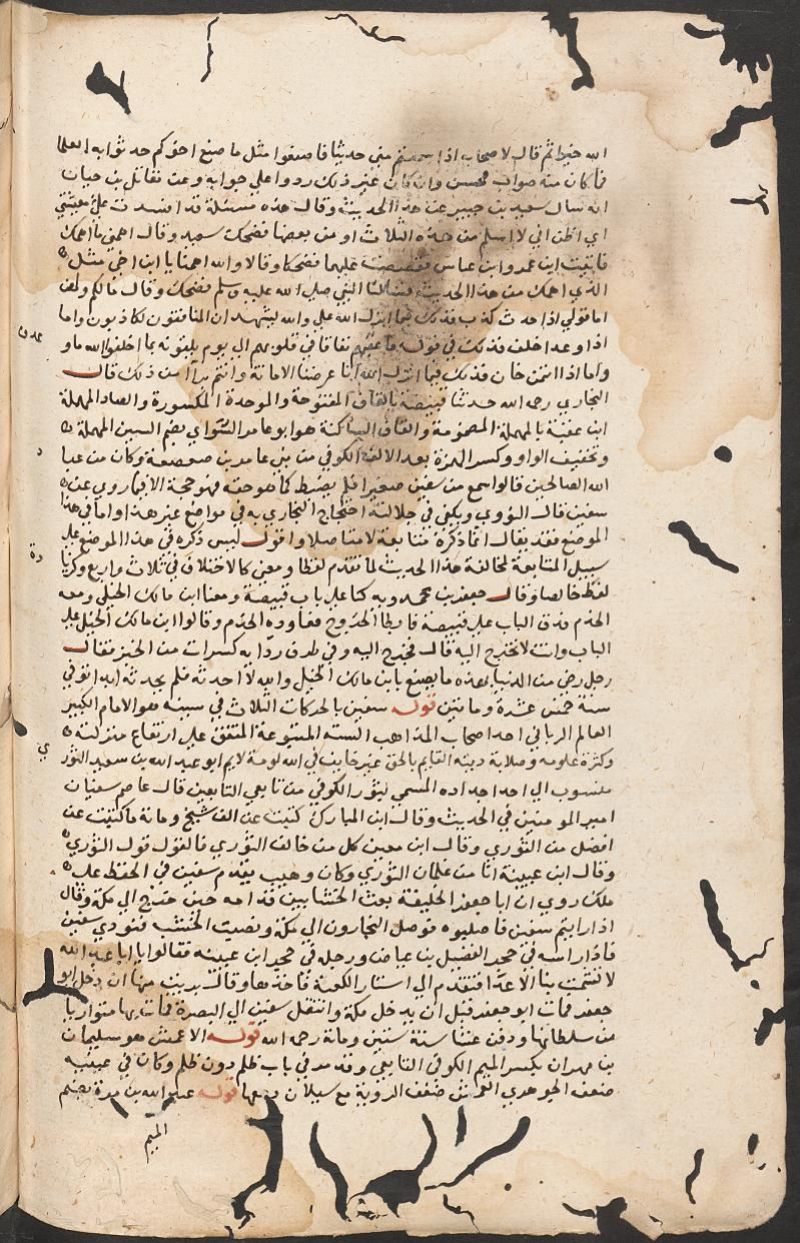 الله حفيظ ثم قال لاصحابه اذا سمعتم مني حديثا فاصنعوا مثل ما صنع اخوكم حدثوا به العلما
فما كان منه صواب فحسن وان كان غير ذلك ردوا علي جوابه وعن مقاتل بن حيان
انه سال سعيد بن جبير عن هذا الحديث وقال هذه مسئلة قد افسدت علي معيشتي
اي اظن اني لا اسلم من هذه الثلاث او من بعضها فضحك سعيد وقال اهمني ما اهمك
فاتيت ابن عمر وابن عباس فقصصت عليهما فضحكا وقالا والله اهمنا يا ابن اخي مثل
الذي اهمك من هذا الحديث فسالنا النبي صلي الله عليه وسلم فضحك وقال مالكم ولهن
اما قولي اذا حدث كذب فذلك فيما انزل الله علي والله يشهد ان المنافقون لكاذبون واما
اذا وعد اخلف فذلك في قوله فاعقبهم نفاقا في قلوبهم الي يوم يلقونه بما اخلفوا الله ما و عدوه
واما اذا ائتمن خان فذلك فيما انزل الله انا عرضنا الامانة وانتم براا من ذلك قال
البخاري رحمه الله حدثنا قبيصة بالقاف المفتوحة والموحدة المكسورة والصاد المهملة
ابن عقبة بالمهملة المضمومة والقاف الساكنة هو ابو عامر السوائي بضم السين المهملة
وتخفيف الواو وكسر الهمزة بعد الالف الكوفي من بني عامر بن صعصعة وكان من عبا د
الله الصالحين قالوا سمع من سفين صغيرا فلم يضبط كما هو حقه فهو حجة الا فيما روي عن
سفين قال النووي ويكفي في جلالته احتجاج البخاري به في مواضع غير هذا واما في هذا
الموضع فقد يقال انما ذكره متابعة لا متاصلا واقول ليس ذكره في هذا الموضع علي
سبيل المتابعة لمخالفة هذا الحديث لما تقدم لفظا ومعني كالاختلاف في ثلاث واربع وكزيا دة
لفظ خالصا وقال جعفر بن حمدويه كنا علي باب قبيصة ومعنا ابن مالك الجبلي ومعه
الخدم فدق الباب علي قبيصة فابطا الخروج فعاوده الخدم وقالوا ابن مالك الجبل علي
الباب وانت لا تخرج اليه قال فخرج اليه وفي طرف ردائه كسرات من الخبز فقال
رجل رضي من الدنيا بهذه ما يصنع بابن مالك الجبل والله لا احدثه فلم يحدثه ابدا توفي
سنة خمس عشرة ومائتين قوله سفين بالحركات الثلاث في سينه هو الامام الكبير
العالم الرباني احد اصحاب المذاهب الستة المتبوعة المتفق علي ارتفاع منزلته
وكثرة علومه وصلابة دينه القايم بالحق غير خايف في الله لومة لايم ابو عبد الله بن سعيد الثور ي
منسوب الي احد اجداده المسمي بثور الكوفي من تابعي التابعين قال عاصم سفيان
امير المومنين في الحديث وقال ابن المبارك كتبت عن الف شيخ ومائة ما كتبت عن
افضل من الثوري وقال ابن معين كل من خالف الثوري فالقول قول الثوري
وقال ابن عيينة انا من غلمان الثوري وكان وهيب يقدم سفين في الحفظ علي
ملك روي ان ابا جعفر الخليفة بعث الخشابين قدامه حين خرج الي مكة وقال
اذا رايتم سفين فاصلبوه فوصل النجارون الي مكة ونصبت الخشب فنودي سفين
فاذا راسه في حجر الفضيل بن عياض ورجله في حجر ابن عيينه فقالوا يا ابا عبد الله
لا تشمت بنا الاعدا فتقدم الي استار الكعبة فاخذها وقال بريت منها ان دخل ابو
جعفر فمات ابو جعفر قبل ان يدخل مكة وانتقل سفين الي البصرة فمات بها متواريا
من سلطانها ودفن عشا سنة ستين ومائة رحمه الله قوله الاعمش هو سليمان
بن مهران بكسر الميم الكوفي التابعي وقد مر في باب ظلم دون ظلم وكان في عينيه
ضعف الجوهري العمش ضعف الروية مع سيلان دمعها قوله عبد الله بن مرة بضم
الميم